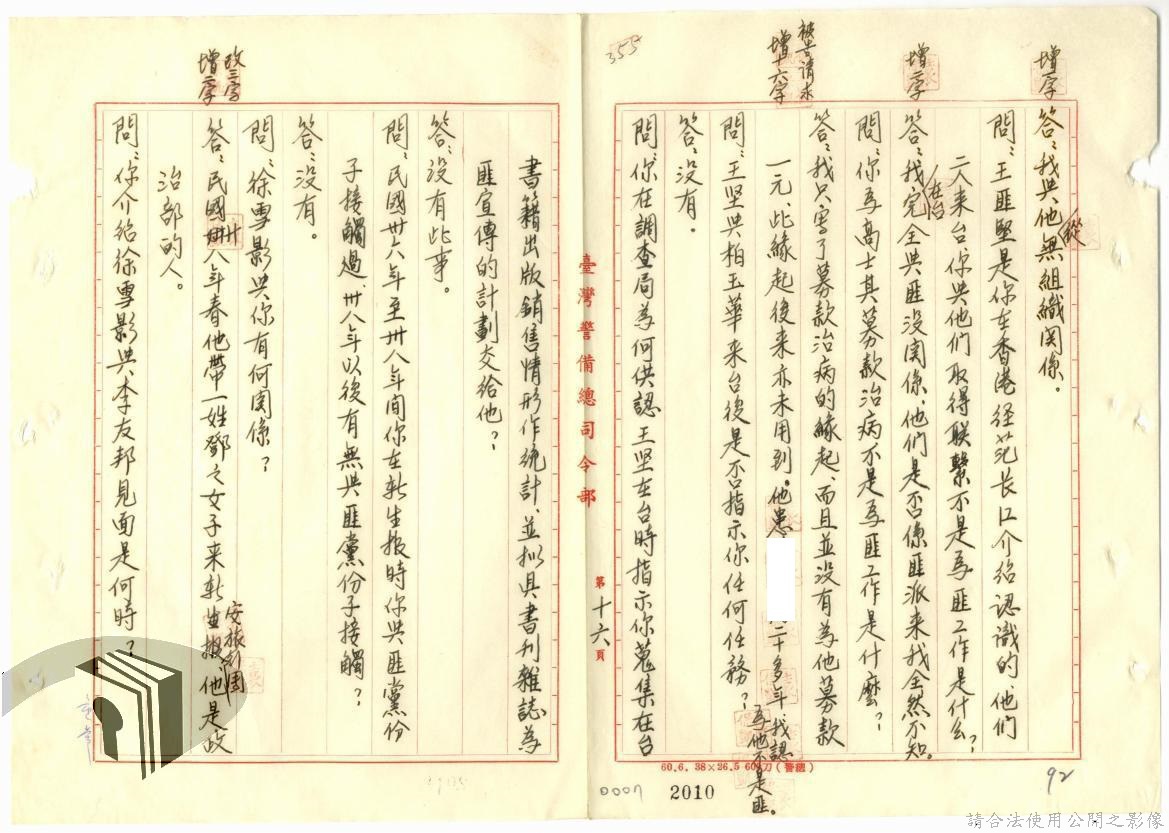 增一字
答：我與他無組織関係。
從
問：王匪堅是你在香港経范长江介绍認識的、他們
二人来台、你與他們取得联繫不是為匪工作是什么？
在台
增二字
答：我完全與匪没関係、他們是否係匪派来我全然不知。
問：你為高士其募款治病不是為匪工作是什麽？
答：我只寫了募款治病的緣起、而且並没有為他募款
被告请求
增十六字
一元、此緣起後来亦未用到。他患
二十多年、我認
為他不是匪。
問：王坚與柏玉華来台後是否指示你任何任務？
答：没有．
問：你在調查局為何供認王坚在台時指示你蒐集在台
355
92
60.6. 38×26.5 60刀(警總)
0007
2010
臺灣警備總司令部
第十六頁
書籍出版銷售情形作統計、並拟具書刊雜誌為
匪宣傳的計劃交给他？
答：没有此事。
問：民國卅六年至卅八年间你在新生报時你與匪黨份
子接觸過、卅八年以後有無與匪黨份子接觸？
答：没有。
問：徐雪影與你有何関係？
改一字
增三字
答：民國卅八年春他帶一姓鄧之女子来新生報、他是政
卅
安旅行團
治部的人。
問：你介绍徐雪影與李友邦見面是何時？
請合法使用公開之影像